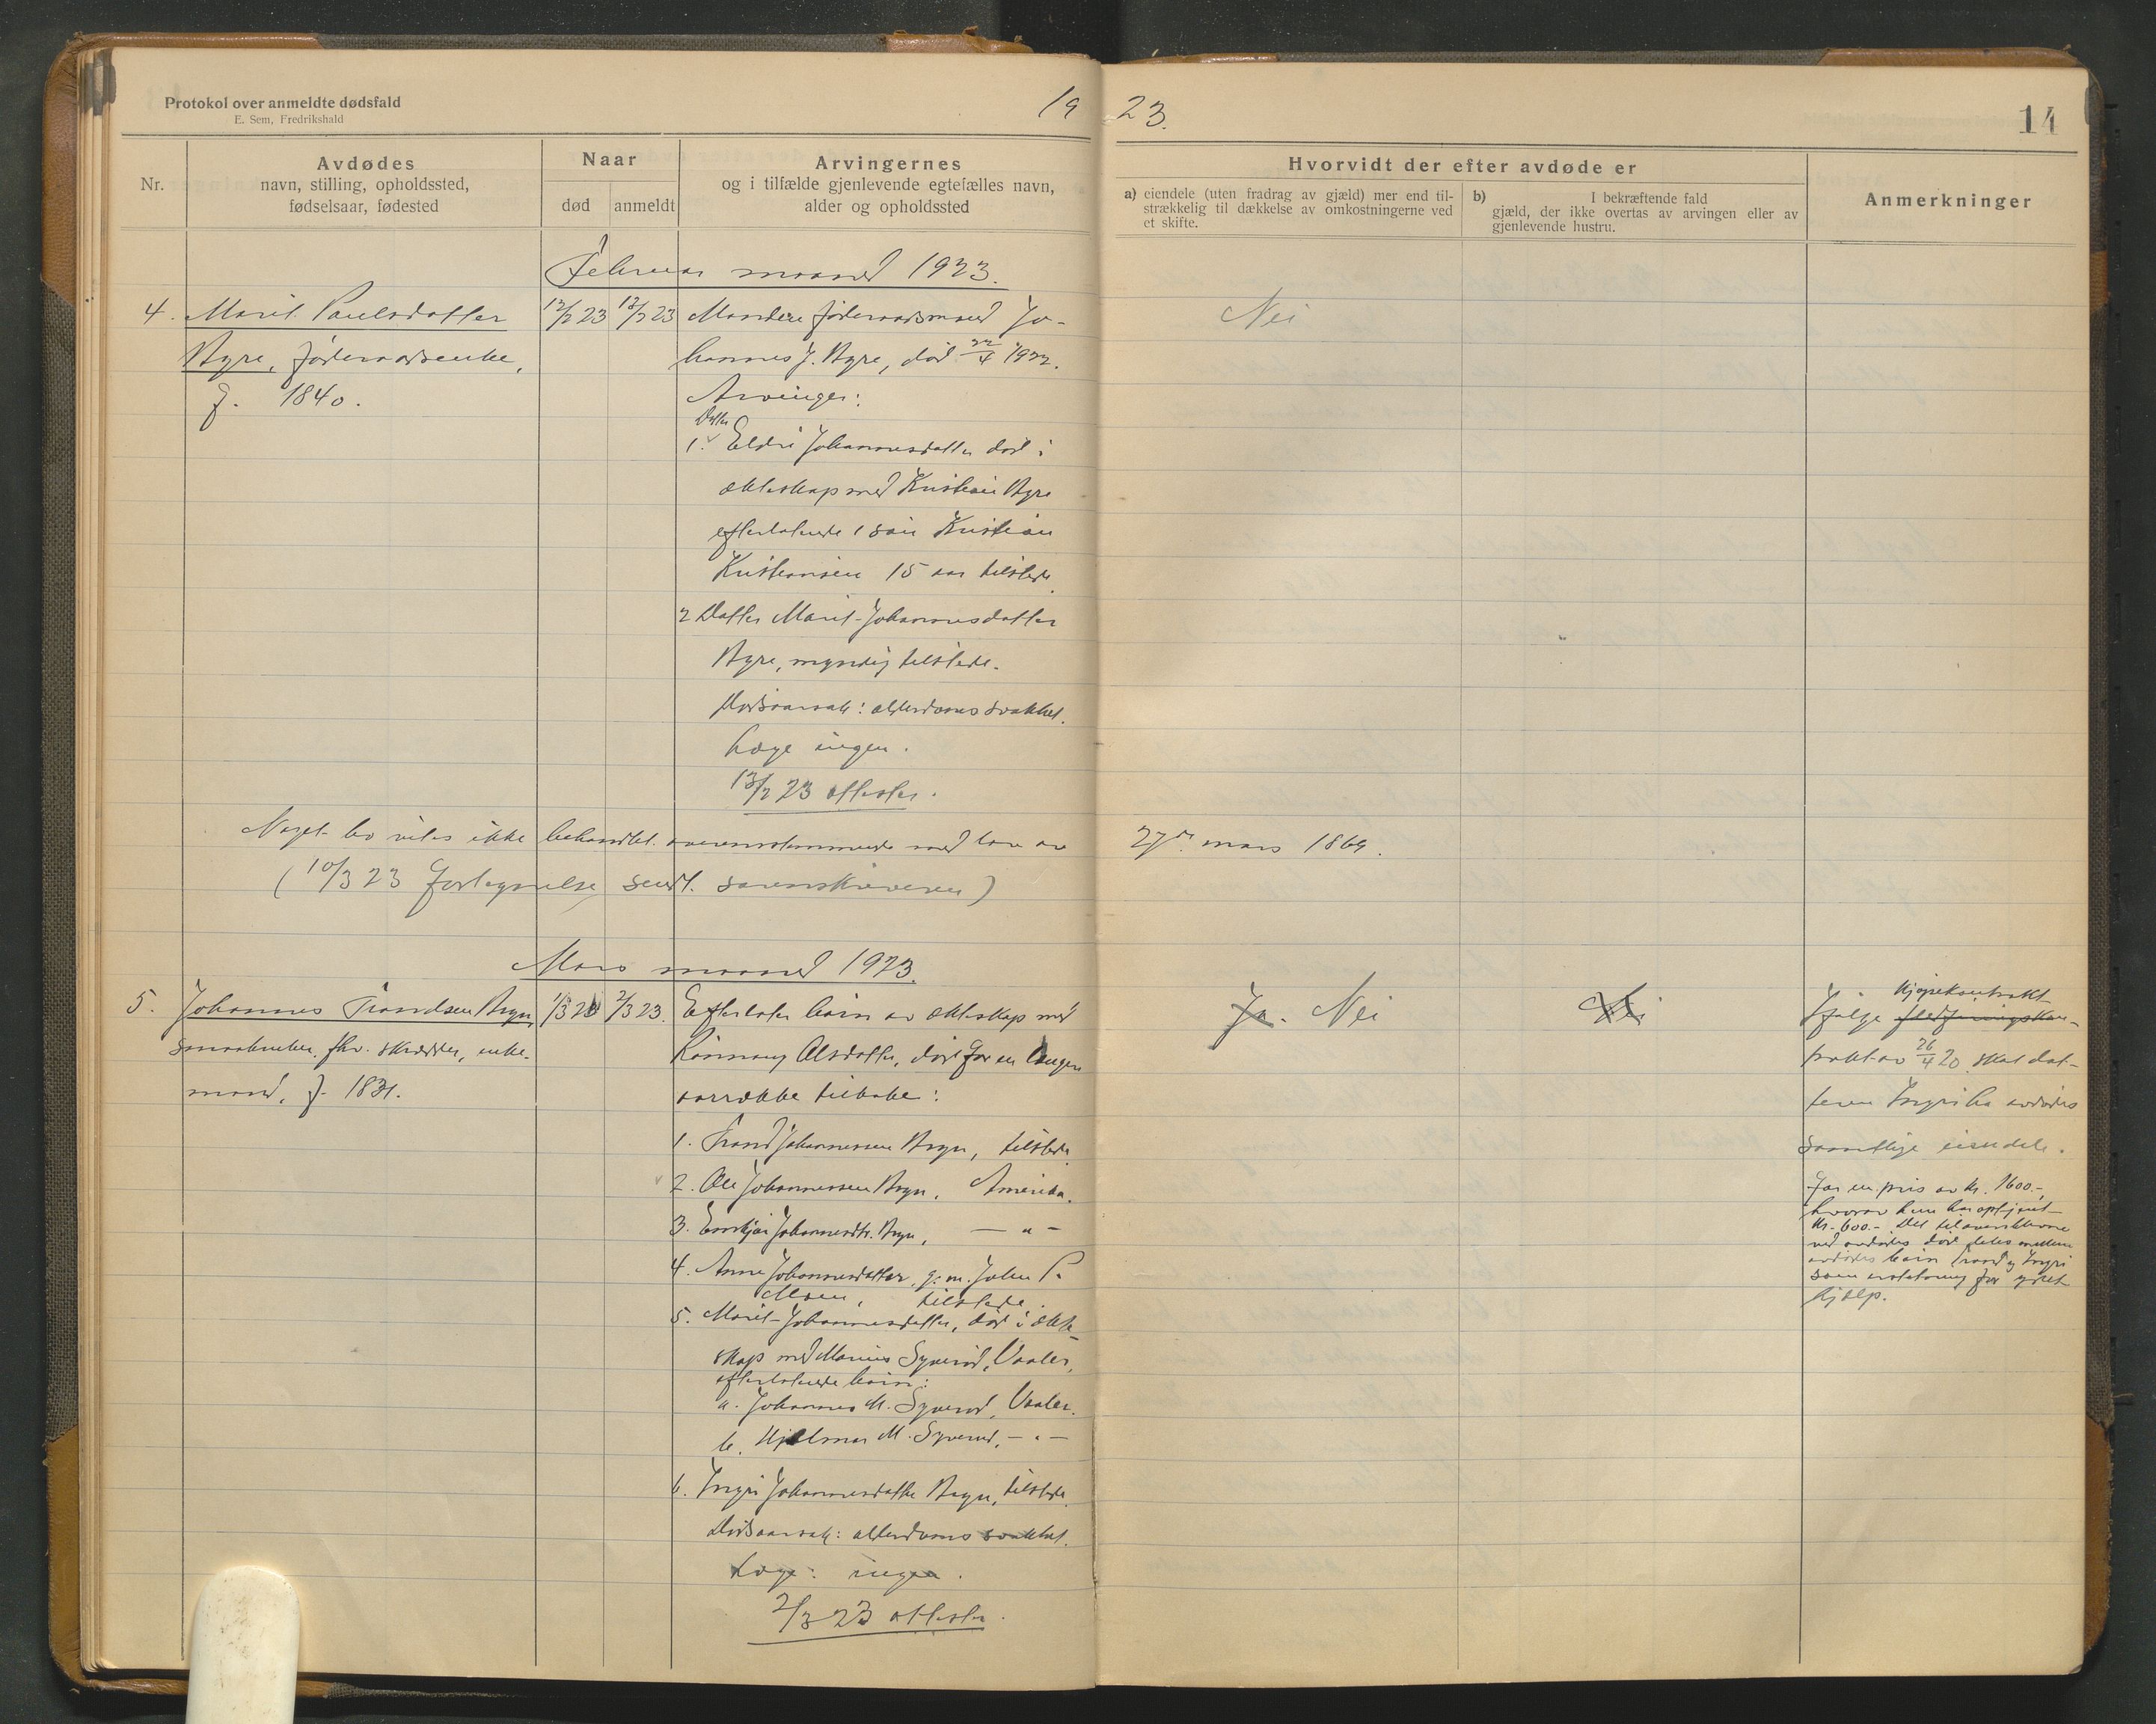 Protokol over anmeldte dødsfald
E. Sem, Fredrikshald
19 23.
14
Nr.
Avdødes
navn, stilling, opholdssted,
fødselsaar, fødested
Naar
død
anmeldt
Arvingernes
og i tilfælde gjenlevende egtefælles navn,
alder og opholdssted
Hvorvidt der efter avdøde er
a) eiendele (uten fradrag av gjæld) mer end til-
strækkelig til dækkelse av omkostningerne ved
et skifte.
b) I bekræftende fald
gjæld, der ikke overtas av arvingen eller av
gjenlevende hustru.
Anmerkninger
Februar maaned 1923.
4. Marit Paulsdatter
Agre, føderaadsenke,
f. 1840.
12/2 23
13/2 23
Manden føderaadsmand Jo-
hannes J. Agre, død 22/4 1922.
Arvinger:
Datter
1. Eldri Johannesdatter død i
ekteskap med Kristian Agre
efterlatende 1 søn Kristian
Kristiansen 15 aar tilstede
2 Datter Marit Johannesdatter
Agre, myndig tilstede.
Dødsaarsak: alderdomssvakhet.
Læge ingen.
13/2 23 attester.
Nei
Noget bo vites ikke behandlet overensstemmende med lov av 27de mars 1869.
(10/3 23 fortegnelse sendt sorenskriveren)
Mars maaned 1923.
5. Johannes Trondsen Bryn
smaabruker, fhv. skrædder, enke-
mand, f. 1831.
1/3 23
2/3 23.
Efterlater barn av ekteskap med
Rønnaug Olsdatter, død for en længere
aarrække tilbake:
1. Trond Johannessen Bryn, tilstede
2. Ole Johannessen Bryn, Amerika.
3. Johannesdtr. Bryn, — " —
4. Anne Johannesdatter, g. m. John P.
Moen, tilstede.
5. Marit Johannesdatter, død i ekte-
skap med Marius Syverud, Vaaler,
efterlatende barn:
a. Johannes M. Syverud, Vaaler.
b. Hjalmar M. Syverud, — " —
6. Ingri Johannesdatter Bryn, tilstede.
Dødsaarsak: alderdomssvakhet.
Læge: ingen.
2/3 23 attester.
Ja. Nei
Nei
kjøpekontrakt
Ifølge
trakt av 26/4 20 skal dat-
teren Ingri ha avdødes
samtlige eiendele.
for en pris av kr. 1600.-,
hvorav hun har optjent
kr. 600.- Det tiloversblevne
ved avdødes død deles mellem
avdødes barn Trond og Ingri
som erstatning for ydet
hjælp.